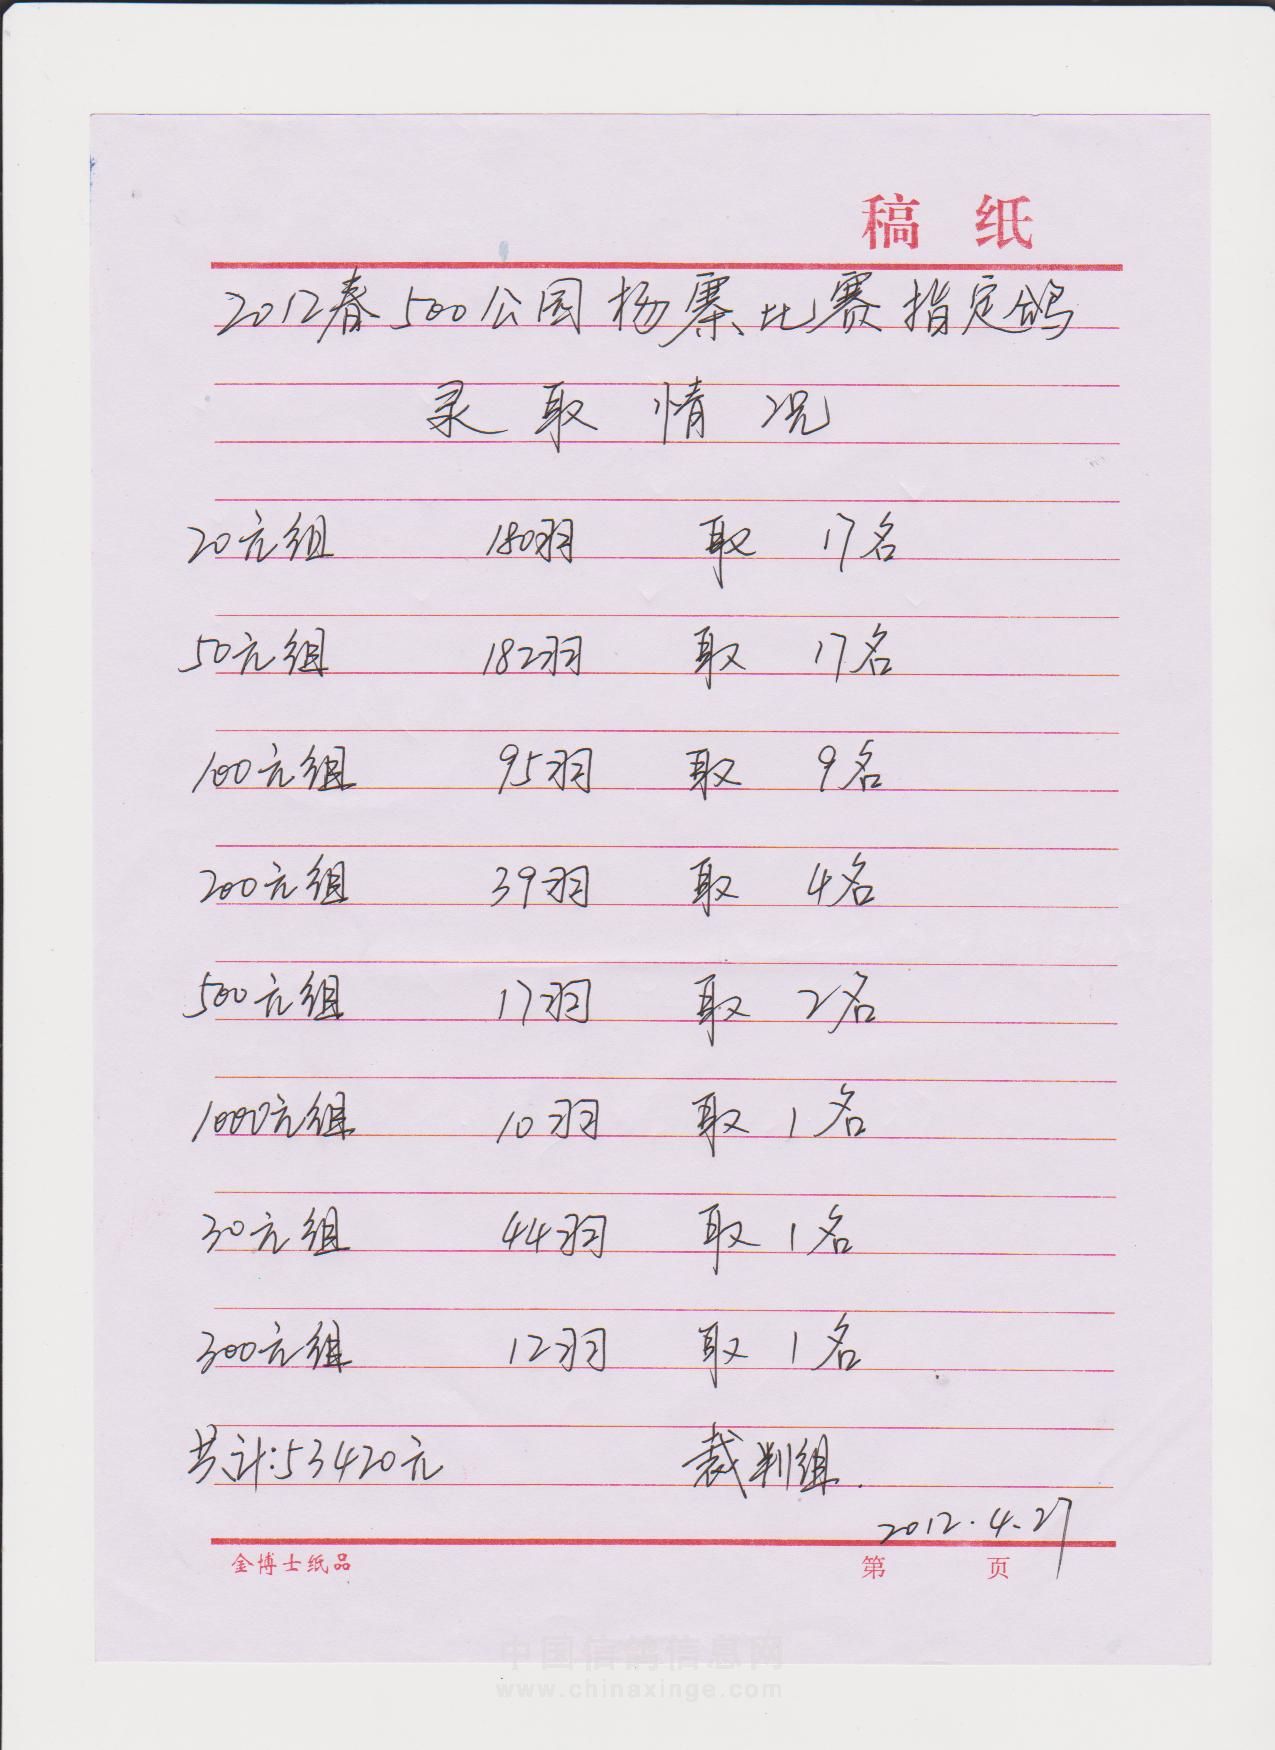 稿 纸
2012春500公园杨寨比赛指定鸽
录取情况
20元组 180羽 取 17名
50元组 182羽 取 17名
100元组 95羽 取 9名
200元组 39羽 取 4名
500元组 17羽 取 2名
1000元组 10羽 取 1名
30元组 44羽 取 1名
300元组 12羽 取 1名
共计:53420元 裁判组.
2012.4.27
金博士纸品 第 页
中国信鸽信息网
www.chinaxinge.com